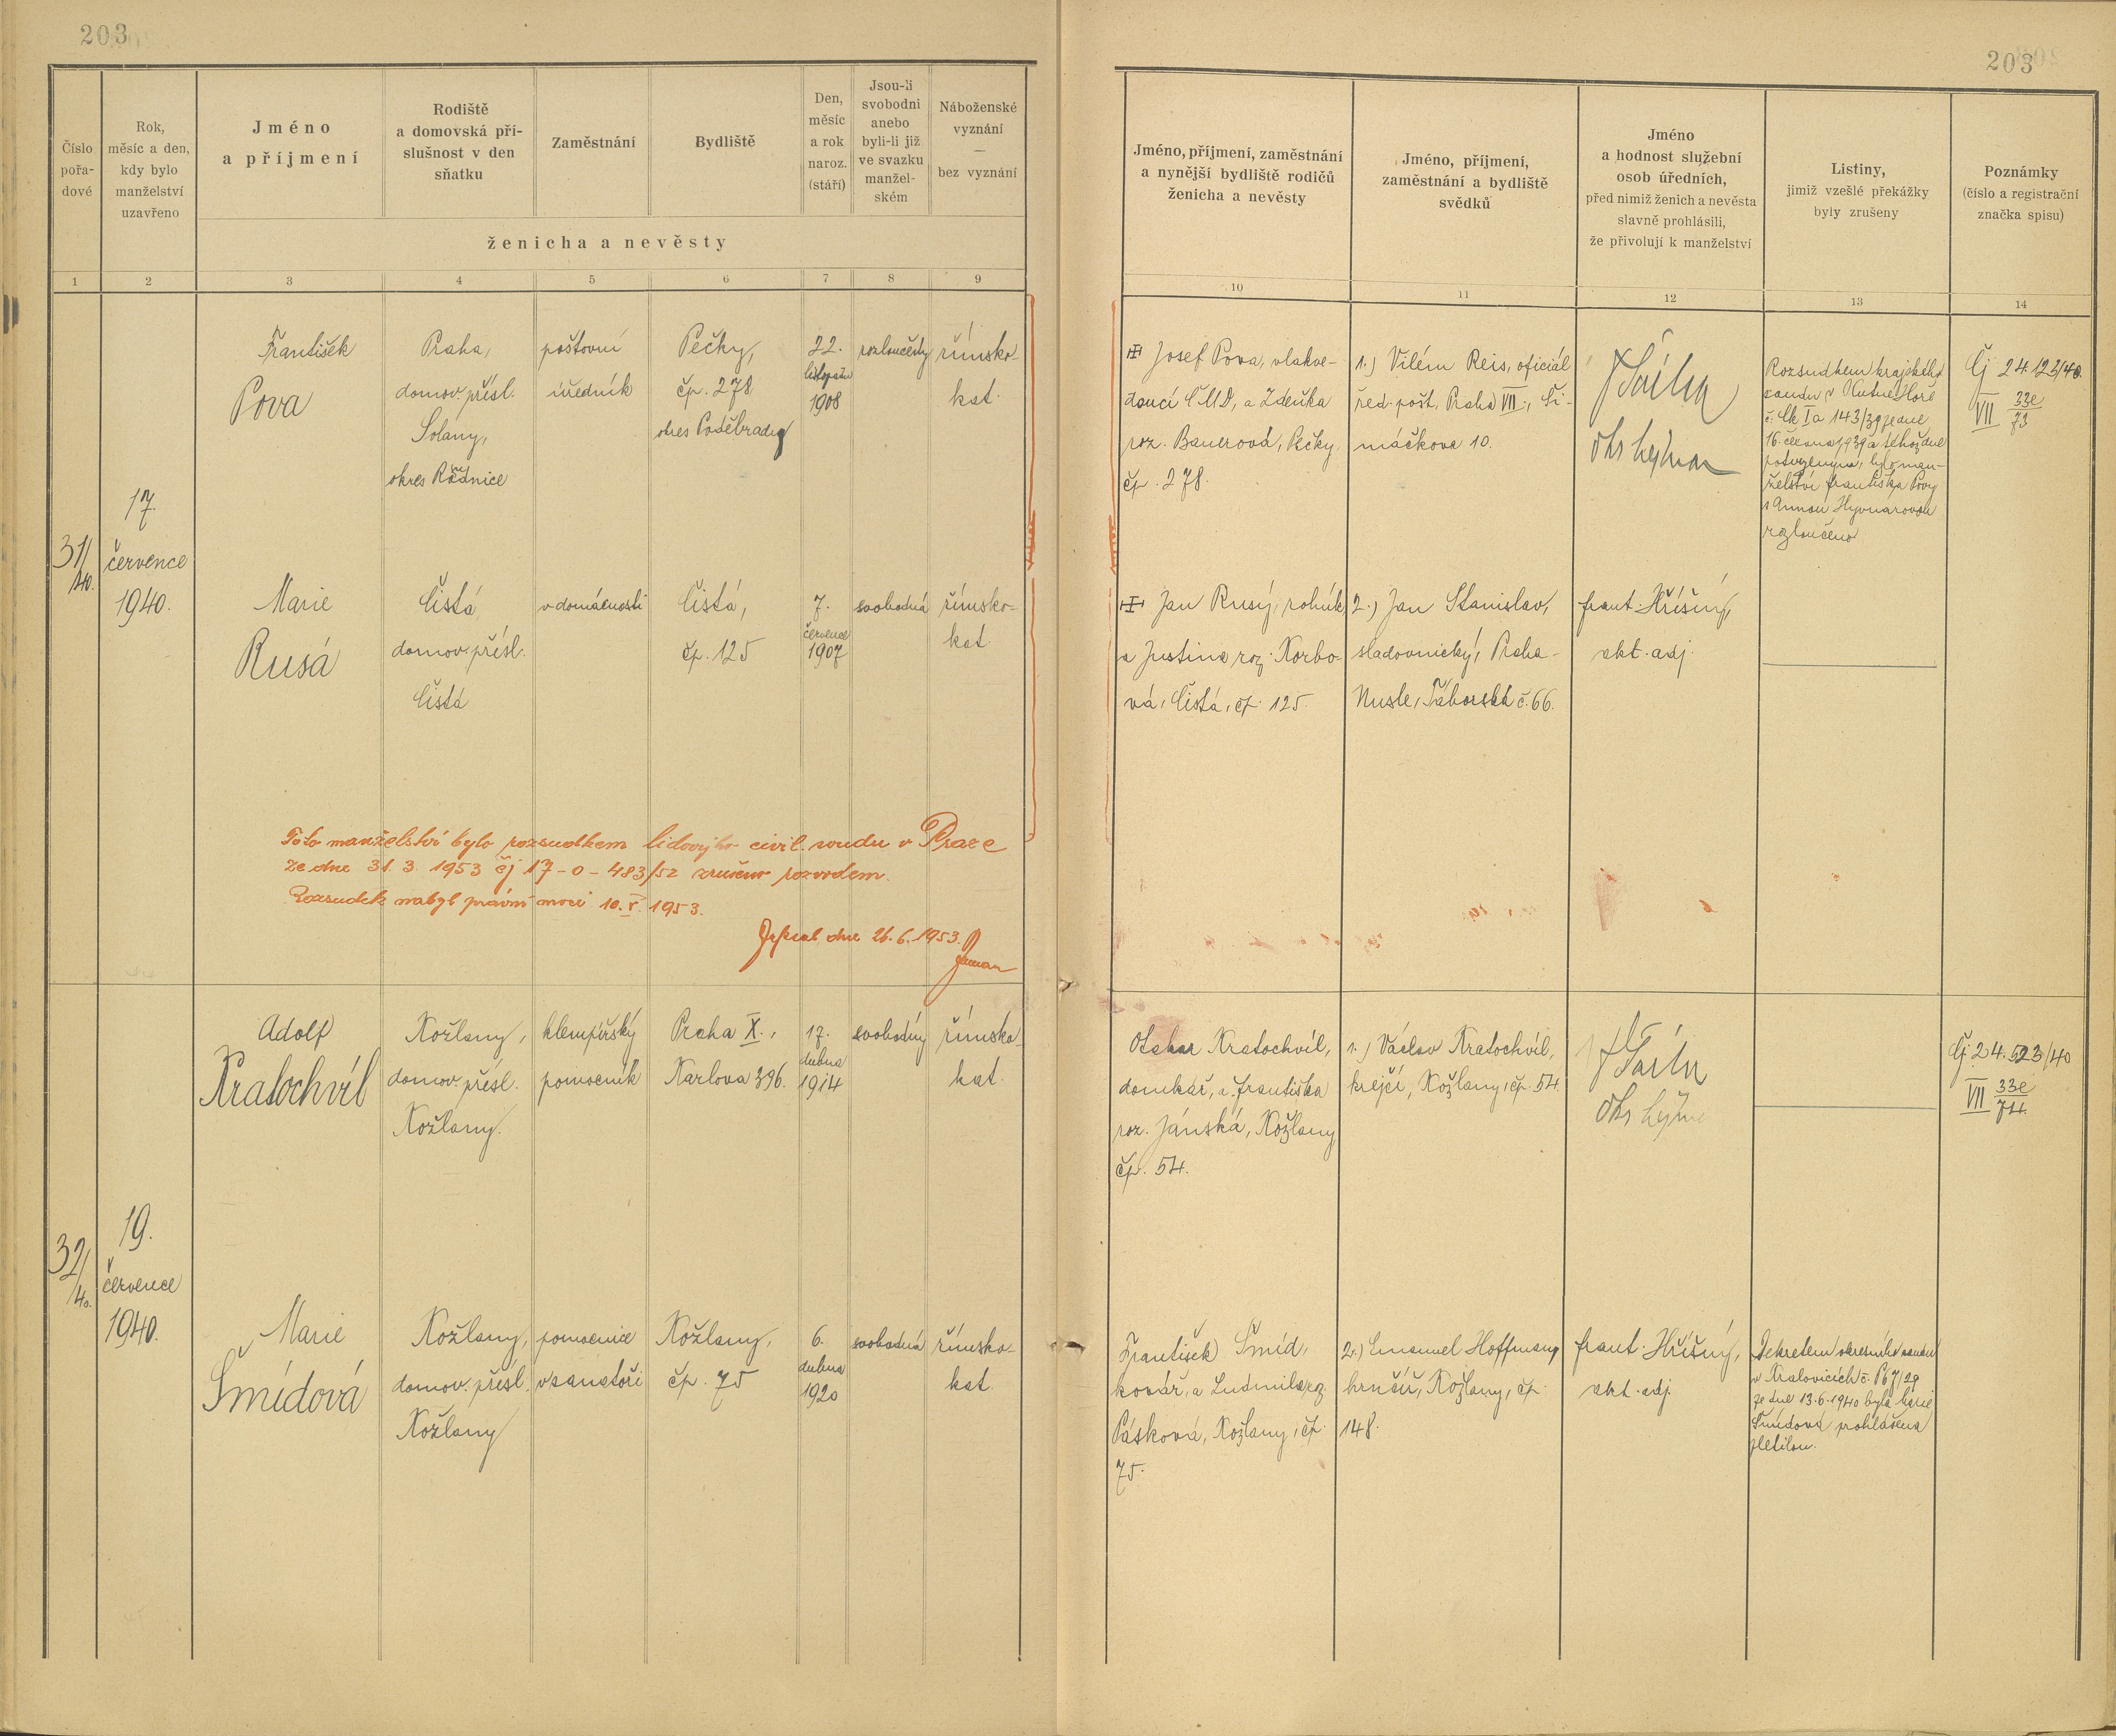 203
203
Číslo
pořa-
dové
Rok,
měsíc a den,
kdy bylo
manželství
uzavřeno
Jméno
a příjmení
Rodiště
a domovská pří-
slušnost v den
sňatku
Zaměstnání
Bydliště
Den,
měsíc
a rok
naroz.
(stáří)
Jsou-li
svobodni
anebo
byli-li již
ve svazku
manžel-
ském
Náboženské
vyznání
—
bez vyznání
ženicha a nevěsty
Jméno, příjmení, zaměstnání
a nynější bydliště rodičů
ženicha a nevěsty
Jméno, příjmení,
zaměstnání a bydliště
svědků
Jméno
a hodnost služební
osob úředních,
před nimiž ženich a nevěsta
slavně prohlásili,
že přivolují k manželství
Listiny,
jimiž vzešlé překážky
byly zrušeny
Poznámky
(číslo a registrační
značka spisu)
1 2 3 4 5 6 7 8 9 10 11 12 13 14
31/
40.
17.
července
1940.
František
Pova
Praha,
domov. přísl.
Solany,
okres Roudnice
poštovní
úředník
Pečky,
čp. 278
okres Poděbrady
22.
listopadu
1908
rozloučený
římsko-
kat.
Josef Pova, vlakve-
doucí ČMD, a Zdeňka
roz. Bauerová, Pečky
čp. 278.
1.) Vilém Reis, oficiál
řed. pošt, Praha VII., Ši-
máčkova 10.
Rozsudkem krajského
soudu v Kutné Hoře
č. Ck Ia 143/39 ze dne
16. června 1939 a téhož dne
potvrzeným, bylo man-
želství Františka Povy
s Annou Hyvnarovou
rozloučeno
Čj 24.123/40.
VII 33e
73
Marie
Rusá
Čistá,
domov. přísl.
Čistá
v domácnosti
Čistá,
čp. 125
7.
července
1907
svobodná
římsko-
kat.
Jan Rusý, rolník
a Justina roz. Korbo-
vá, Čistá, čp. 125.
2.) Jan Stanislav,
sladovnický, Praha-
Nusle, Táborská č. 66.
frant. Hříšný,
akt. adj.
Toto manželství bylo rozsudkem lidového civil. soudu v Praze
ze dne 31. 3. 1953 čj 17-0-483/52 zrušeno rozvodem.
Rozsudek nabyl právní moci 10. V. 1953.
Zapsal dne 26. 6. 1953.
32/
40.
19.
července
1940.
Adolf
Kratochvíl
Kožlany,
domov. přísl.
Kožlany.
klempířský
pomocník
Praha X.,
Karlova 396.
17.
dubna
1914
svobodný
římsko-
kat.
Otakar Kratochvíl,
domkář, a Františka
roz. Jánská, Kožlany
čp. 54.
1.) Václav Kratochvíl,
krejčí, Kožlany, čp. 54.
Čj. 24.523/40
VII 33e
74.
Marie
Šmídová
Kožlany,
domov. přísl.
Kožlany
pomocnice
v sanatoři
Kožlany,
čp. 75
6.
dubna
1920
svobodná
římsko-
kat.
František Šmíd,
kovář, a Ludmila roz.
Pásková, Kožlany, čp.
75.
2.) Emanuel Hoffmann,
hrnčíř, Kožlany, čp.
148.
frant. Hříšný,
akt. adj.
Dekretem okresního soudu
v Kralovicích č. P 67/29
ze dne 13.6.1940 byla Marie
Šmídová prohlášena
zletilou.